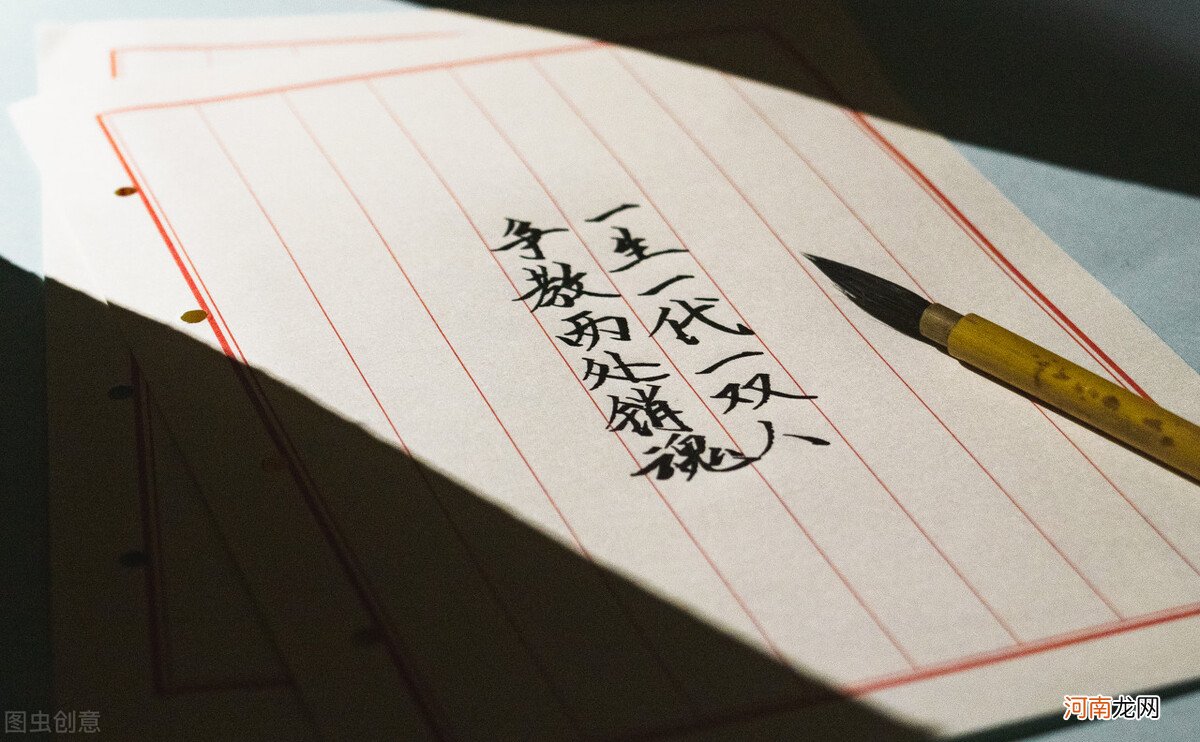 一生一代一双人
争教两处销魂
图虫创意
河南龙网